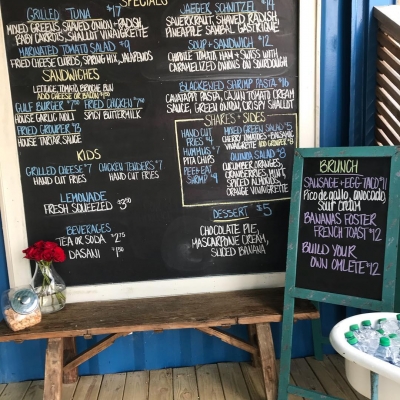 SPECIALS
GRILLED TUNA $17
MIXED GREENS, SHAVED ONION + RADISH,
BABY CARROTS, SHALLOT VINAIGRETTE
MARINATED TOMATO SALAD $9
FRIED CHEESE CURDS, SPRING MIX, JALAPENOS
SANDWICHES
LETTUCE TOMATO BRIOCHE BUN
ADD CHEESE OR BACON
GULF BURGER
HOUSE GARLIC MAYO
FRIED CHICKEN
SPICY BUTTERMILK
FRIED GROUPER $13
HOUSE TARTAR SAUCE
KIDS
GRILLED CHEESE $7
HAND CUT FRIES
CHICKEN TENDERS $7
HAND CUT FRIES
LEMONADE
FRESH SQUEEZED
BEVERAGES
TEA OR SODA
DASANI
JAEGER SCHNITZEL $14
SAUERKRAUT, SHAVED RADISH,
PINEAPPLE SAMBAL GASTRIQUE
SOUP + SANDWICH $12
CHIPOTLE TOMATO, HAM + SWISS WITH
CARAMELIZED ONIONS ON SOURDOUGH
BLACKENED SHRIMP PASTA $16
CAVATAPPI PASTA, CAJUN TOMATO CREAM
SAUCE, GREEN ONION, CRISPY SHALLOT
SHARES + SIDES
HAND CUT
FRIES
HUMMUS $7
PITA CHIPS
PEEL + EAT
SHRIMP
MIXED GREEN SALAD $5
CHERRY TOMATOES + BALSAMIC
VINAIGRETTE ADD GROUPER
QUINOA SALAD $8
CUCUMBER, ORANGES,
CRANBERRIES, MINT,
SPICED ALMONDS,
ORANGE VINAIGRETTE
DESSERT $5
CHOCOLATE PIE,
MASCARPONE CREAM,
SLICED BANANA
BRUNCH
SAUSAGE + EGG TACO $11
Pico de gallo, avocado,
sour cream
BANANAS FOSTER
FRENCH TOAST $12
BUILD YOUR
OWN OMLETE $12